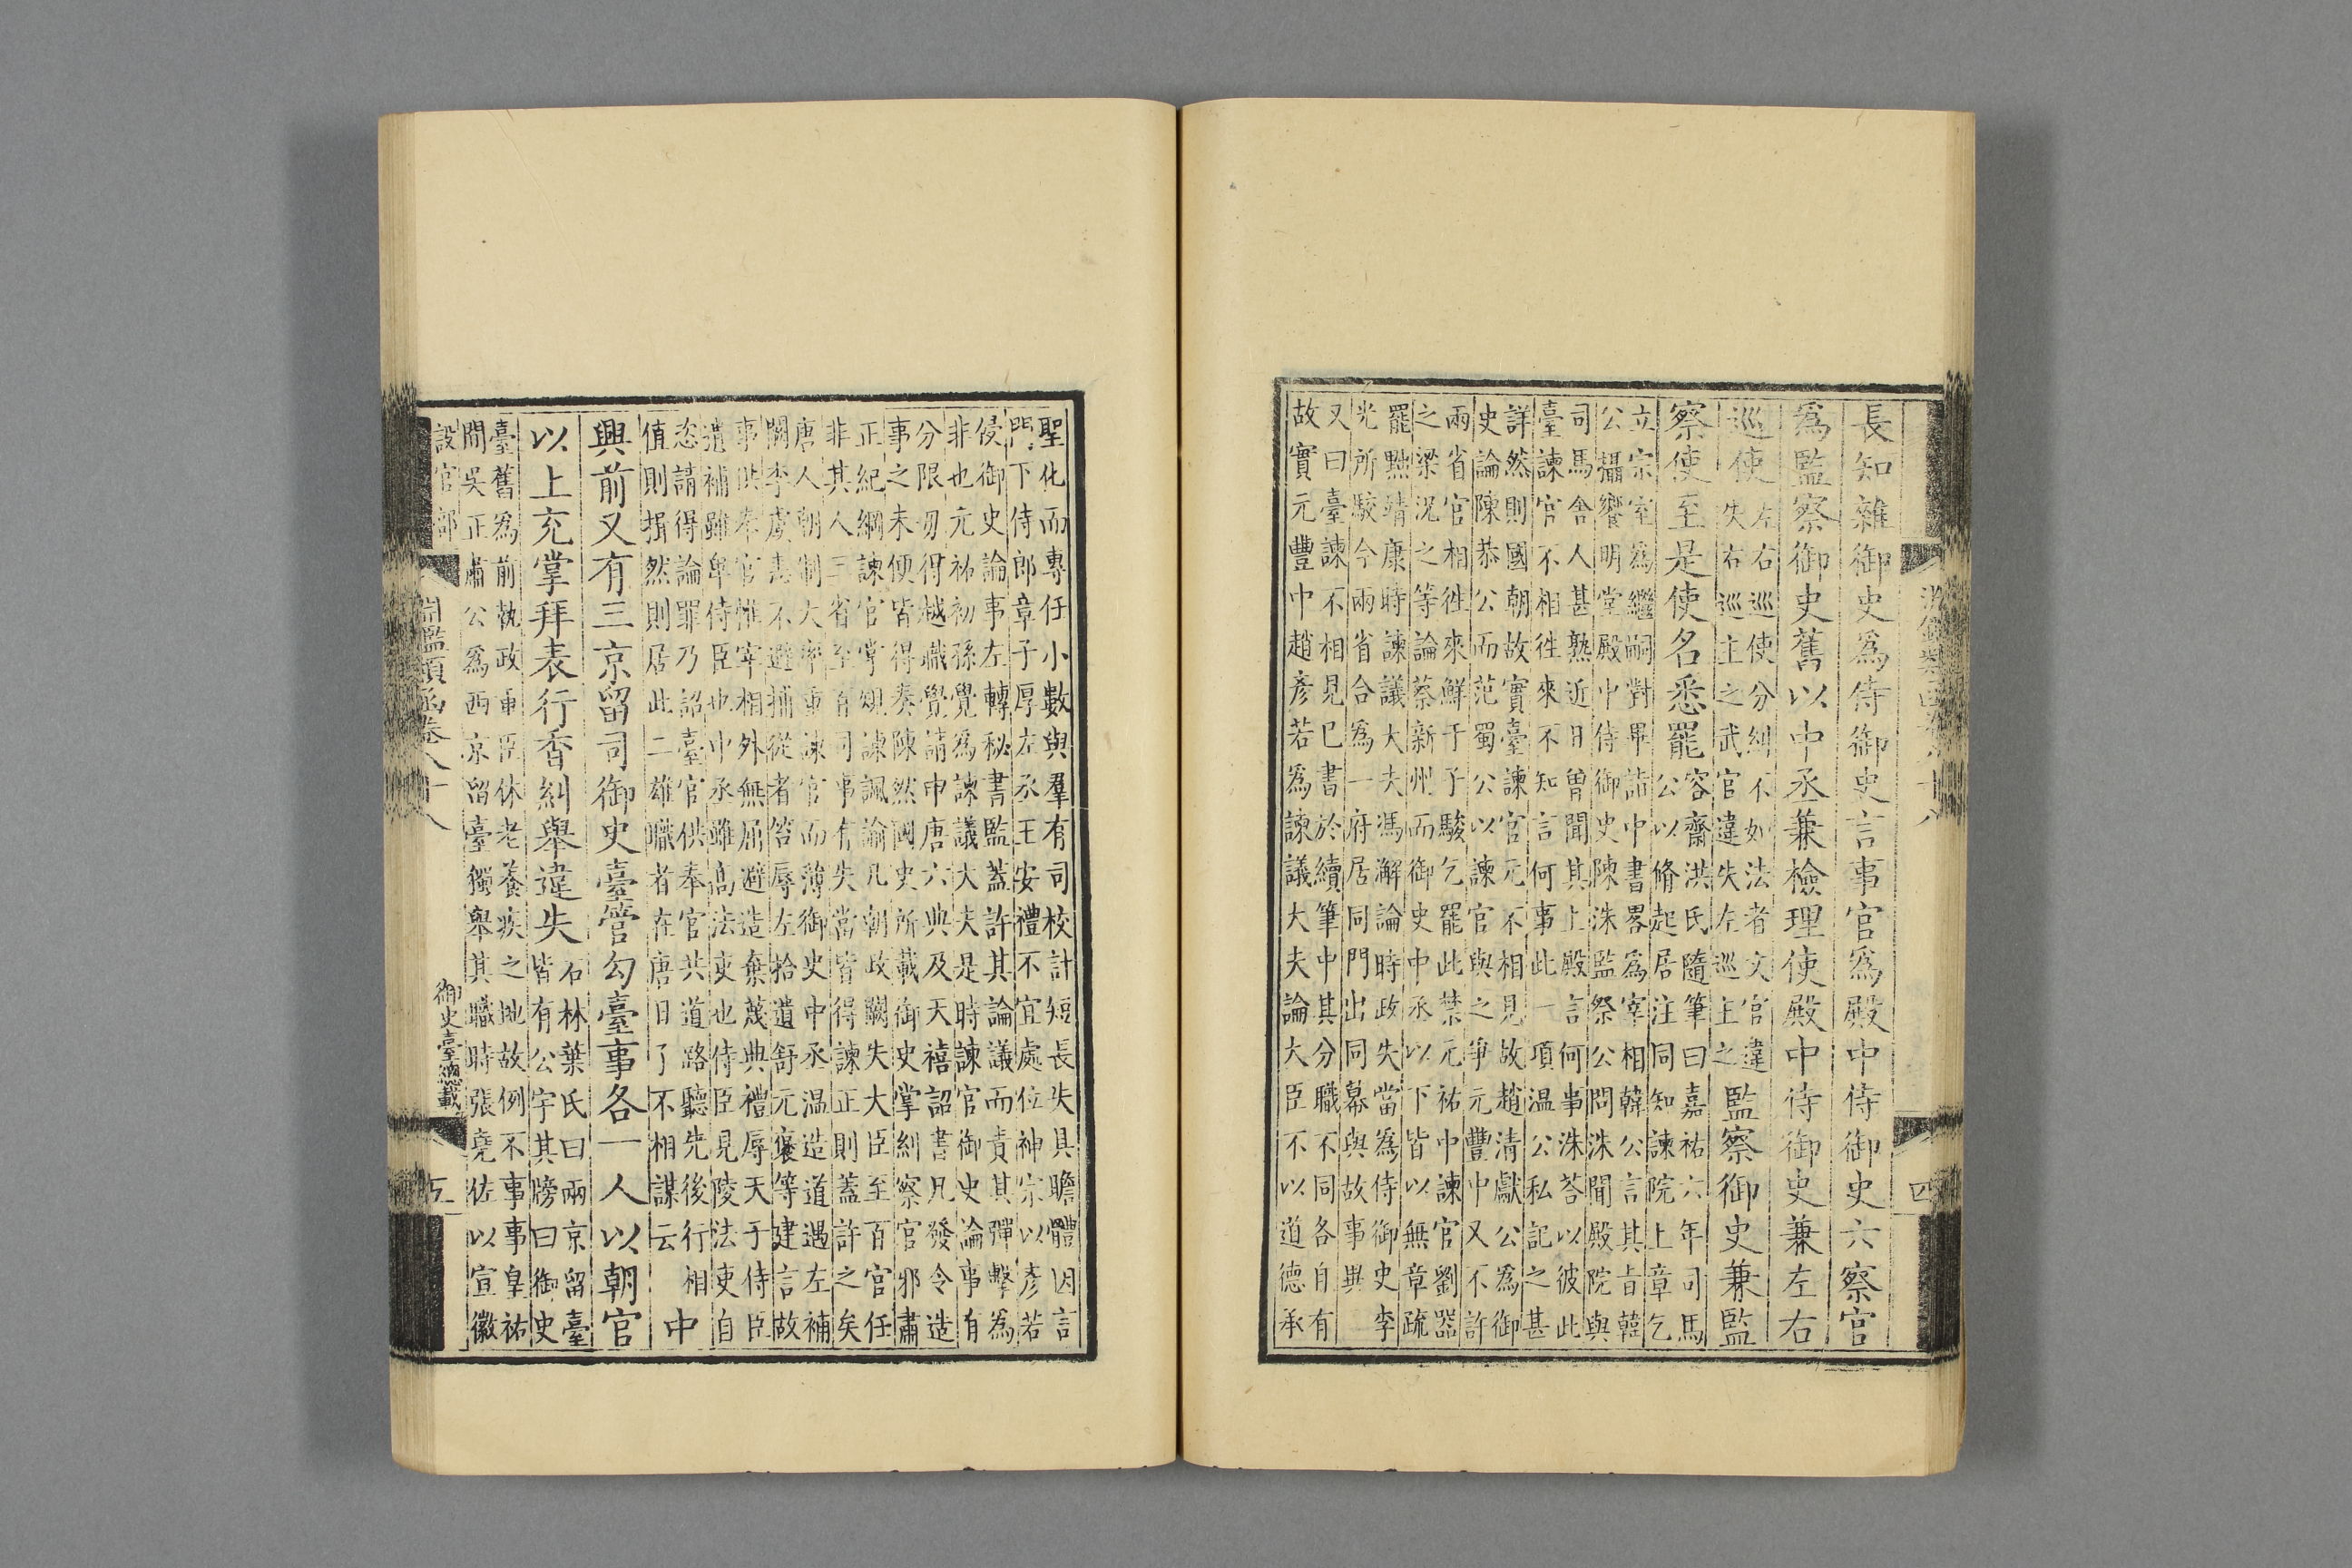 長知雜御史爲侍御史言事官爲殿中侍御史六察官
爲監察御史舊以中丞兼檢理使殿中侍御史兼左右
巡使
左右巡使分糾不如法者文官違
失右巡主之武官違失左巡主之
監察御史兼監
察使至是使名悉罷
容齋洪氏隨筆曰嘉祐六年司馬
公以脩起居注同知諫院上章乞
立宗室爲繼嗣對畢詣中書畧爲宰相韓公言其旨韓
公攝饗明堂殿中侍御史陳洙監祭公問洙聞殿院與
司馬舍人甚熟近日曾聞其上殿言何事洙荅以彼此
臺諫官不相徃來不知言何事此一項温公私記之甚
詳然則國朝故實臺諫官元不相見故趙清獻公爲御
史論陳恭公而范蜀公以諫官與之爭元豐中又不許
兩省官相徃來鮮于子駿乞罷此禁元祐中諫官劉器
之梁況之等論蔡新州而御史中丞以下皆以無章疏
罷黜靖康時諫議大夫馮澥論時政失當爲侍御史李
光所駁今兩省合爲一府居同門出同幕與故事異
又曰臺諫不相見已書於續筆中其分職不同各自有
故實元豐中趙彥若爲諫議大夫論大臣不以道德承
四
聖化而專任小數與羣有司校計短長失具瞻體因言
門下侍郎章子厚左丞王安禮不宜處位神宗以彥若
侵御史論事左轉秘書監蓋許其論議而責其彈擊爲
非也元祐初孫覺爲諫議大夫是時諫官御史論事有
分限毋得越職覺請申唐六典及天禧詔書凡發令造
事之未便皆得奏陳然國史所載御史掌糾察官邪肅
正紀綱諫官掌規諫諷諭凡朝政闕失大臣至百官任
非其人三省至百司事有失當皆得諫正則蓋許之矣
唐人朝制大率重諫官而薄御史中丞温造道遇左補
闕李虞恚不避捕從者笞辱左拾遺舒元褒等建言故
事供奉官惟宰相外無屈避造棄蔑典禮辱天子侍臣
遺補雖卑侍臣也中丞雖高法吏也侍臣見陵法吏自
恣請得論罪乃詔臺官供奉官共道路聽先後行相
値則揖然則居此二雄職者在唐日了不相謀云
中
興前又有三京留司御史臺管勾臺事各一人以朝官
以上充掌拜表行香糾舉違失
石林葉氏曰兩京留臺
皆有公宇其牓曰御史
臺舊爲前執政重臣休老養疾之地故例不事事皇祐
間吳正肅公爲西京留臺獨舉其職時張堯佐以宣徽
設官部
淵鑑類函卷八十八
御史臺總載
五